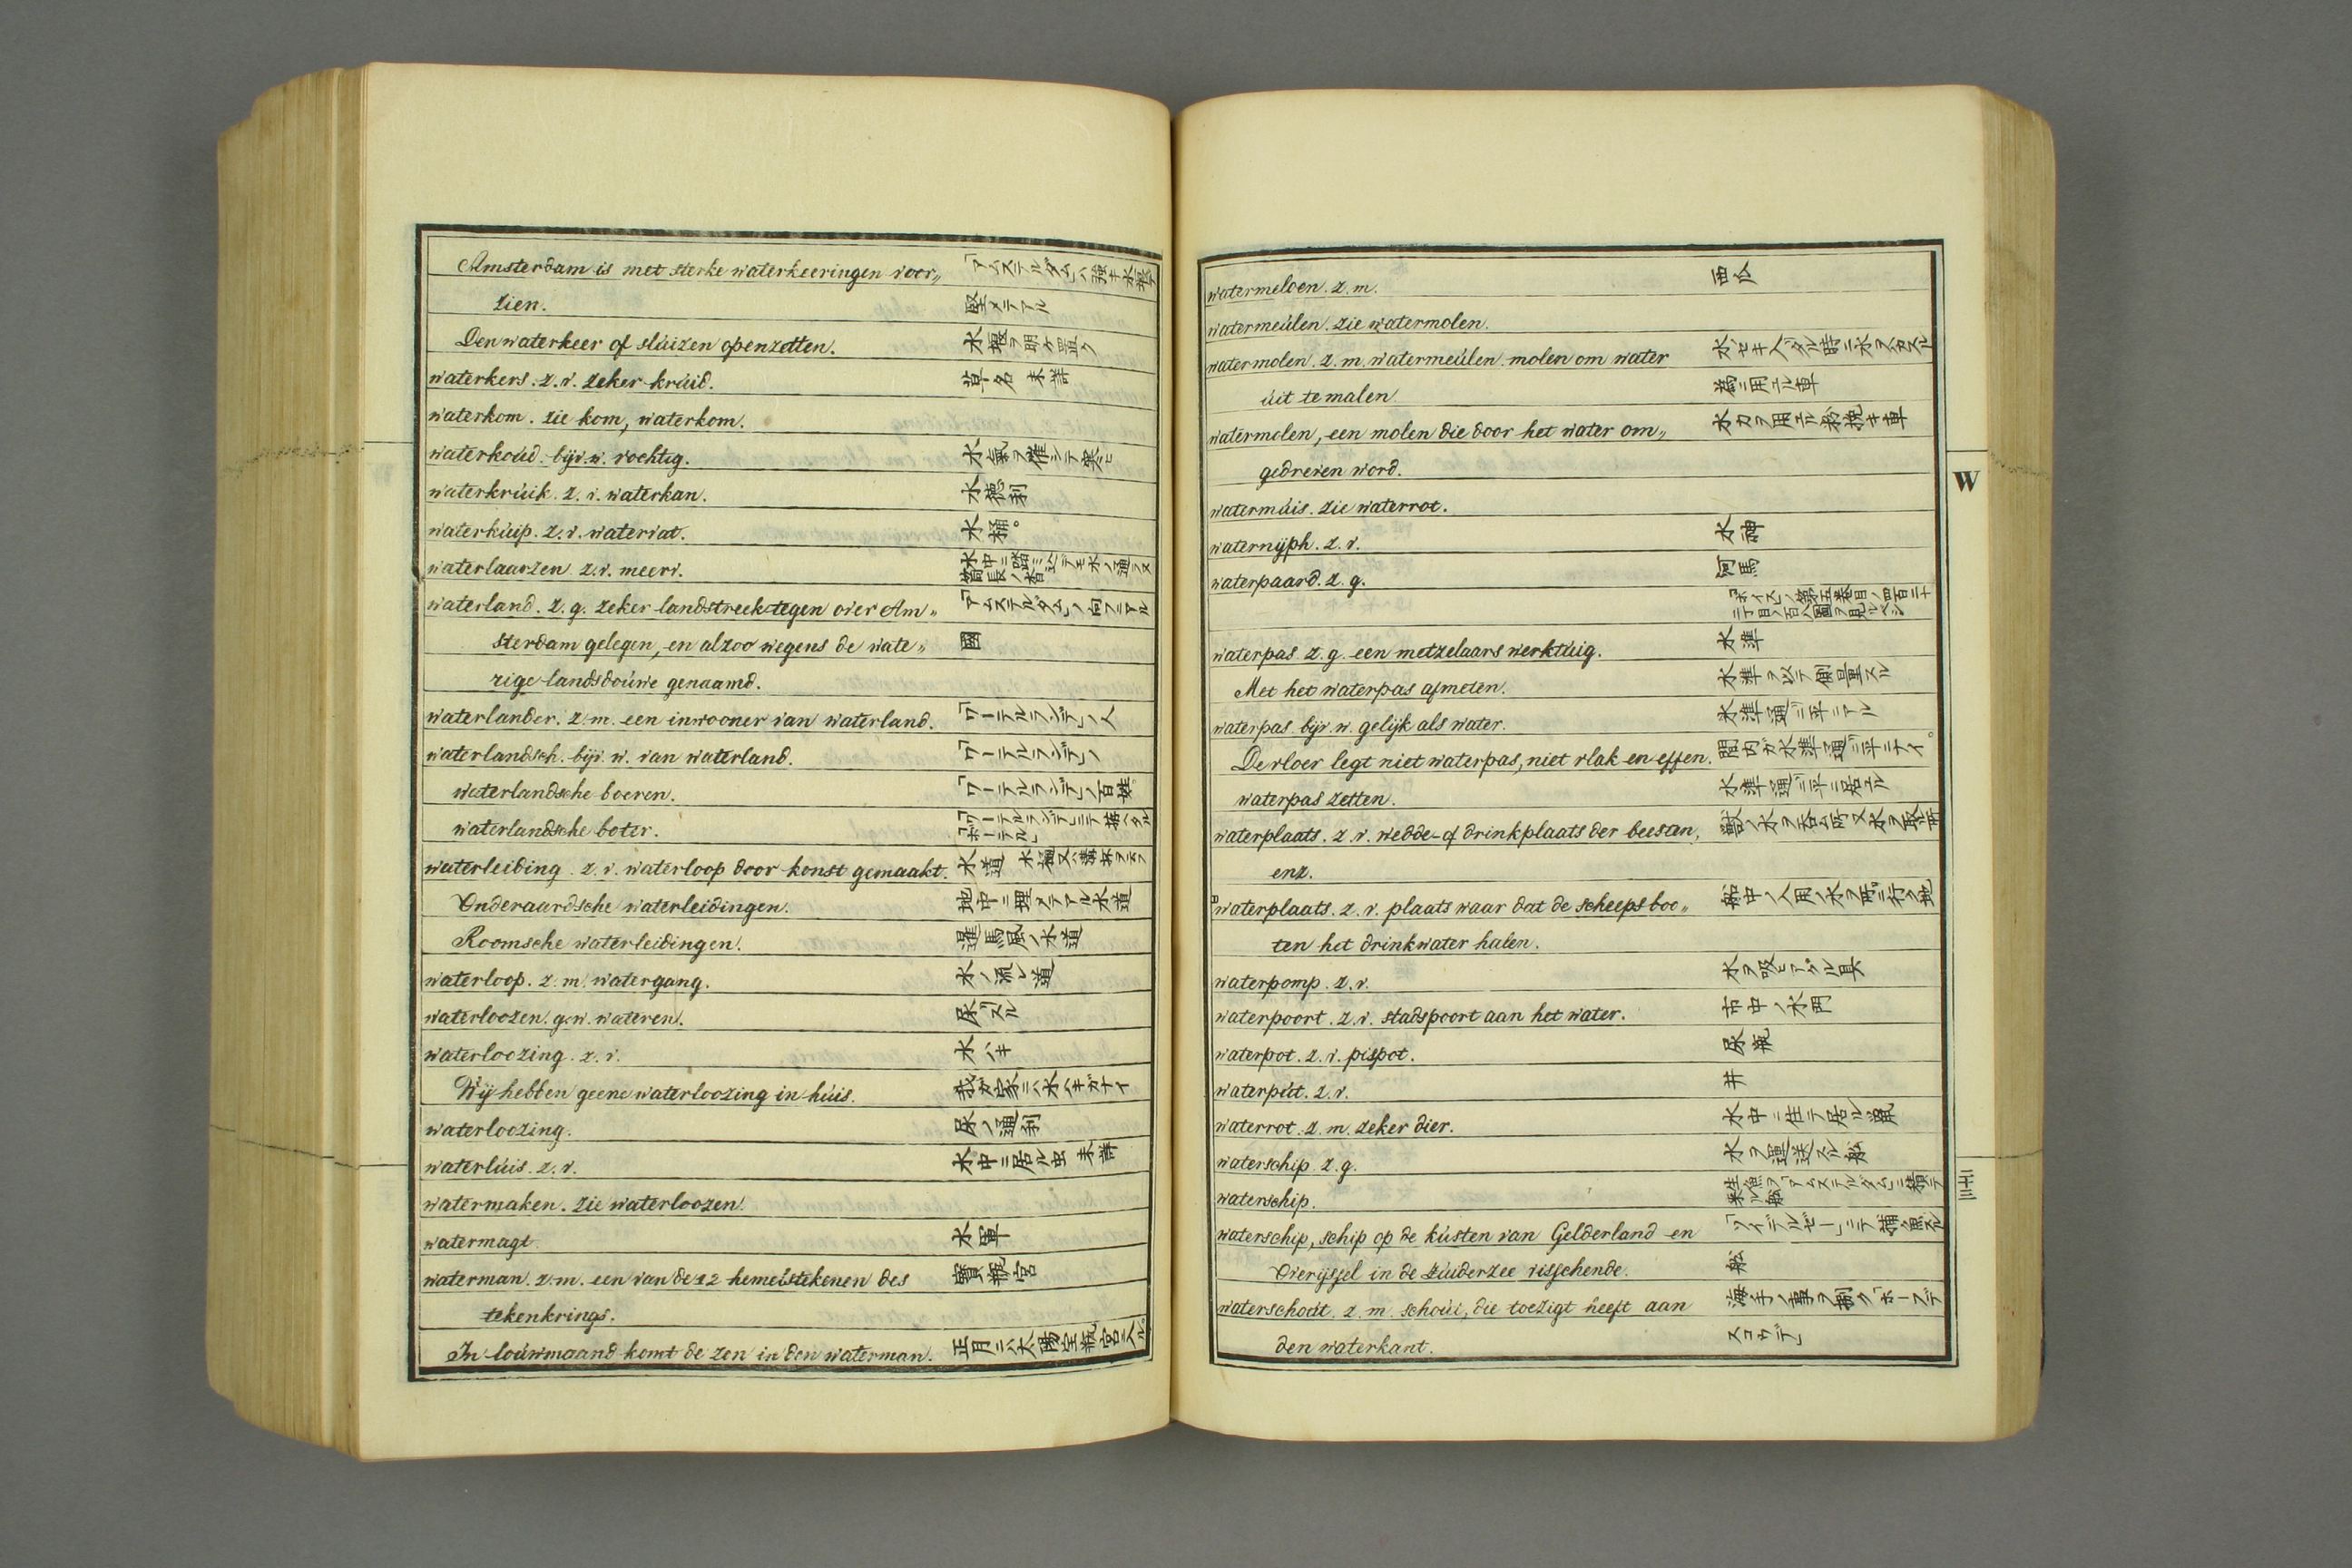 Amsterdam is met sterke waterkeeringen voor„ 「アムステルダム」ハ強キ水堰ヲ
zien. 堅メテアル
Den waterkeer of slúizen openzetten. 水堰ヲ明ケ置ク
waterkers. z. v. zeker krúid. 草名 未詳
waterkom. zie kom, waterkom.
waterkoúd. bijv. w. vochtig. 水氣ヲ催シテ寒ヒ
waterkrúik. z. v. waterkan. 水徳利
waterkúip. z. v. watervat. 水桶。
waterlaarzen z. v. meerv. 水中ニ踏ミ込デモ水ノ通ラヌ
筒長ノ沓
waterland. z. g. zeker landstreek tegen over Am„ 「アムステルダム」ノ向フニアル
sterdam gelegen, en alzoo wegens de wate„ 國
rige landsdoúwe genaamd.
waterlander. z. m. een inwooner van waterland. 「ワーテルランデ」ノ人
waterlandsch. bijv. w. van waterland. 「ワーテルランデ」ノ
waterlandsche boeren. 「ワーテルランデ」ノ百姓
waterlandsche boter. 「ワーテルランデ」ニテ拵ヘタル
「ボーテル」
waterleiding. z. v. waterloop door konst gemaakt. 水道
Onderaardsche waterleidingen. 地中ニ埋メテアル水道
Roomsche waterleidingen. 暹馬風ノ水道
waterloop. z. m. watergang. 水ノ流レ道
waterloozen. g. w. wateren. 尿スル
waterloozing. z. v. 水ハキ
Wij hebben geene waterloozing in húis. 我ガ家ニハ水ハキガナイ
waterloozing. 尿ノ通利
waterlúis. z. v. 水中ニ居ル虫 未詳
watermaken. zie waterloozen.
watermagt 水軍
waterman. z. m. een van de 12 hemelstekenen des 寶瓶宮
tekenkrings.
In loúwmaand komt de zon in den waterman. 正月ニハ太陽宝瓶宮ニ入ル。
watermeloen. z. m. 西瓜
watermeúlen. zie watermolen.
watermolen. z. m. watermeúlen. molen om water
úit te malen 為ニ用エル車
watermolen, een molen die door het water om„ 水力ヲ用エル粉挽キ車
gedreven word.
watermúis. zie waterrot.
waternijph. z. v. 水神
waterpaard. z. g. 河馬
「ボイス」ノ第五巻目ノ四百三十
waterpas z. g. een metzelaars werktúig. 水準
Met het waterpas afmeten. 水準ヲ以テ側量スル
waterpas bijv. w. gelijk als water. 水準通ニ平ニアル
De vloer legt niet waterpas, niet vlak en effen. 間内ガ水準通ニ平ニナイ。
waterpas zetten. 水準通ニ平ニ居エル
waterplaats. z. v. wedde- of drinkplaats der beesten, 獣ノ水ヲ呑ム所又水ヲ取所
enz.
waterplaats. z. v. plaats waar dat de scheeps boo„ 船中ノ人用ノ水ヲ取ニ行ク地
ten het drinkwater halen.
waterpomp. z. v. 水ヲ吸ヒアゲル具
waterpoort. z. v. stadspoort aan het water. 市中ノ水門
waterpot. z. v. pispot. 尿瓶
waterpút. z. v. 井
waterrot. z. m. zeker dier. 水中ニ住テ居ル鼠
waterschip. z. g. 水ヲ運送スル舩
waterschip. 生魚ヲ「アムステルダム」ニ積テ
来ル舩
waterschip, schip op de kústen van Gelderland en 「ソイデルゼー」ニテ捕魚スル
Overijssel in de zúiderzee visschende. 舩
waterschoút. z. m. schoút, die toezigt heeft aan 海手ノ事ヲ制ク「ホーフデ
den waterkant. スコウデ」
W